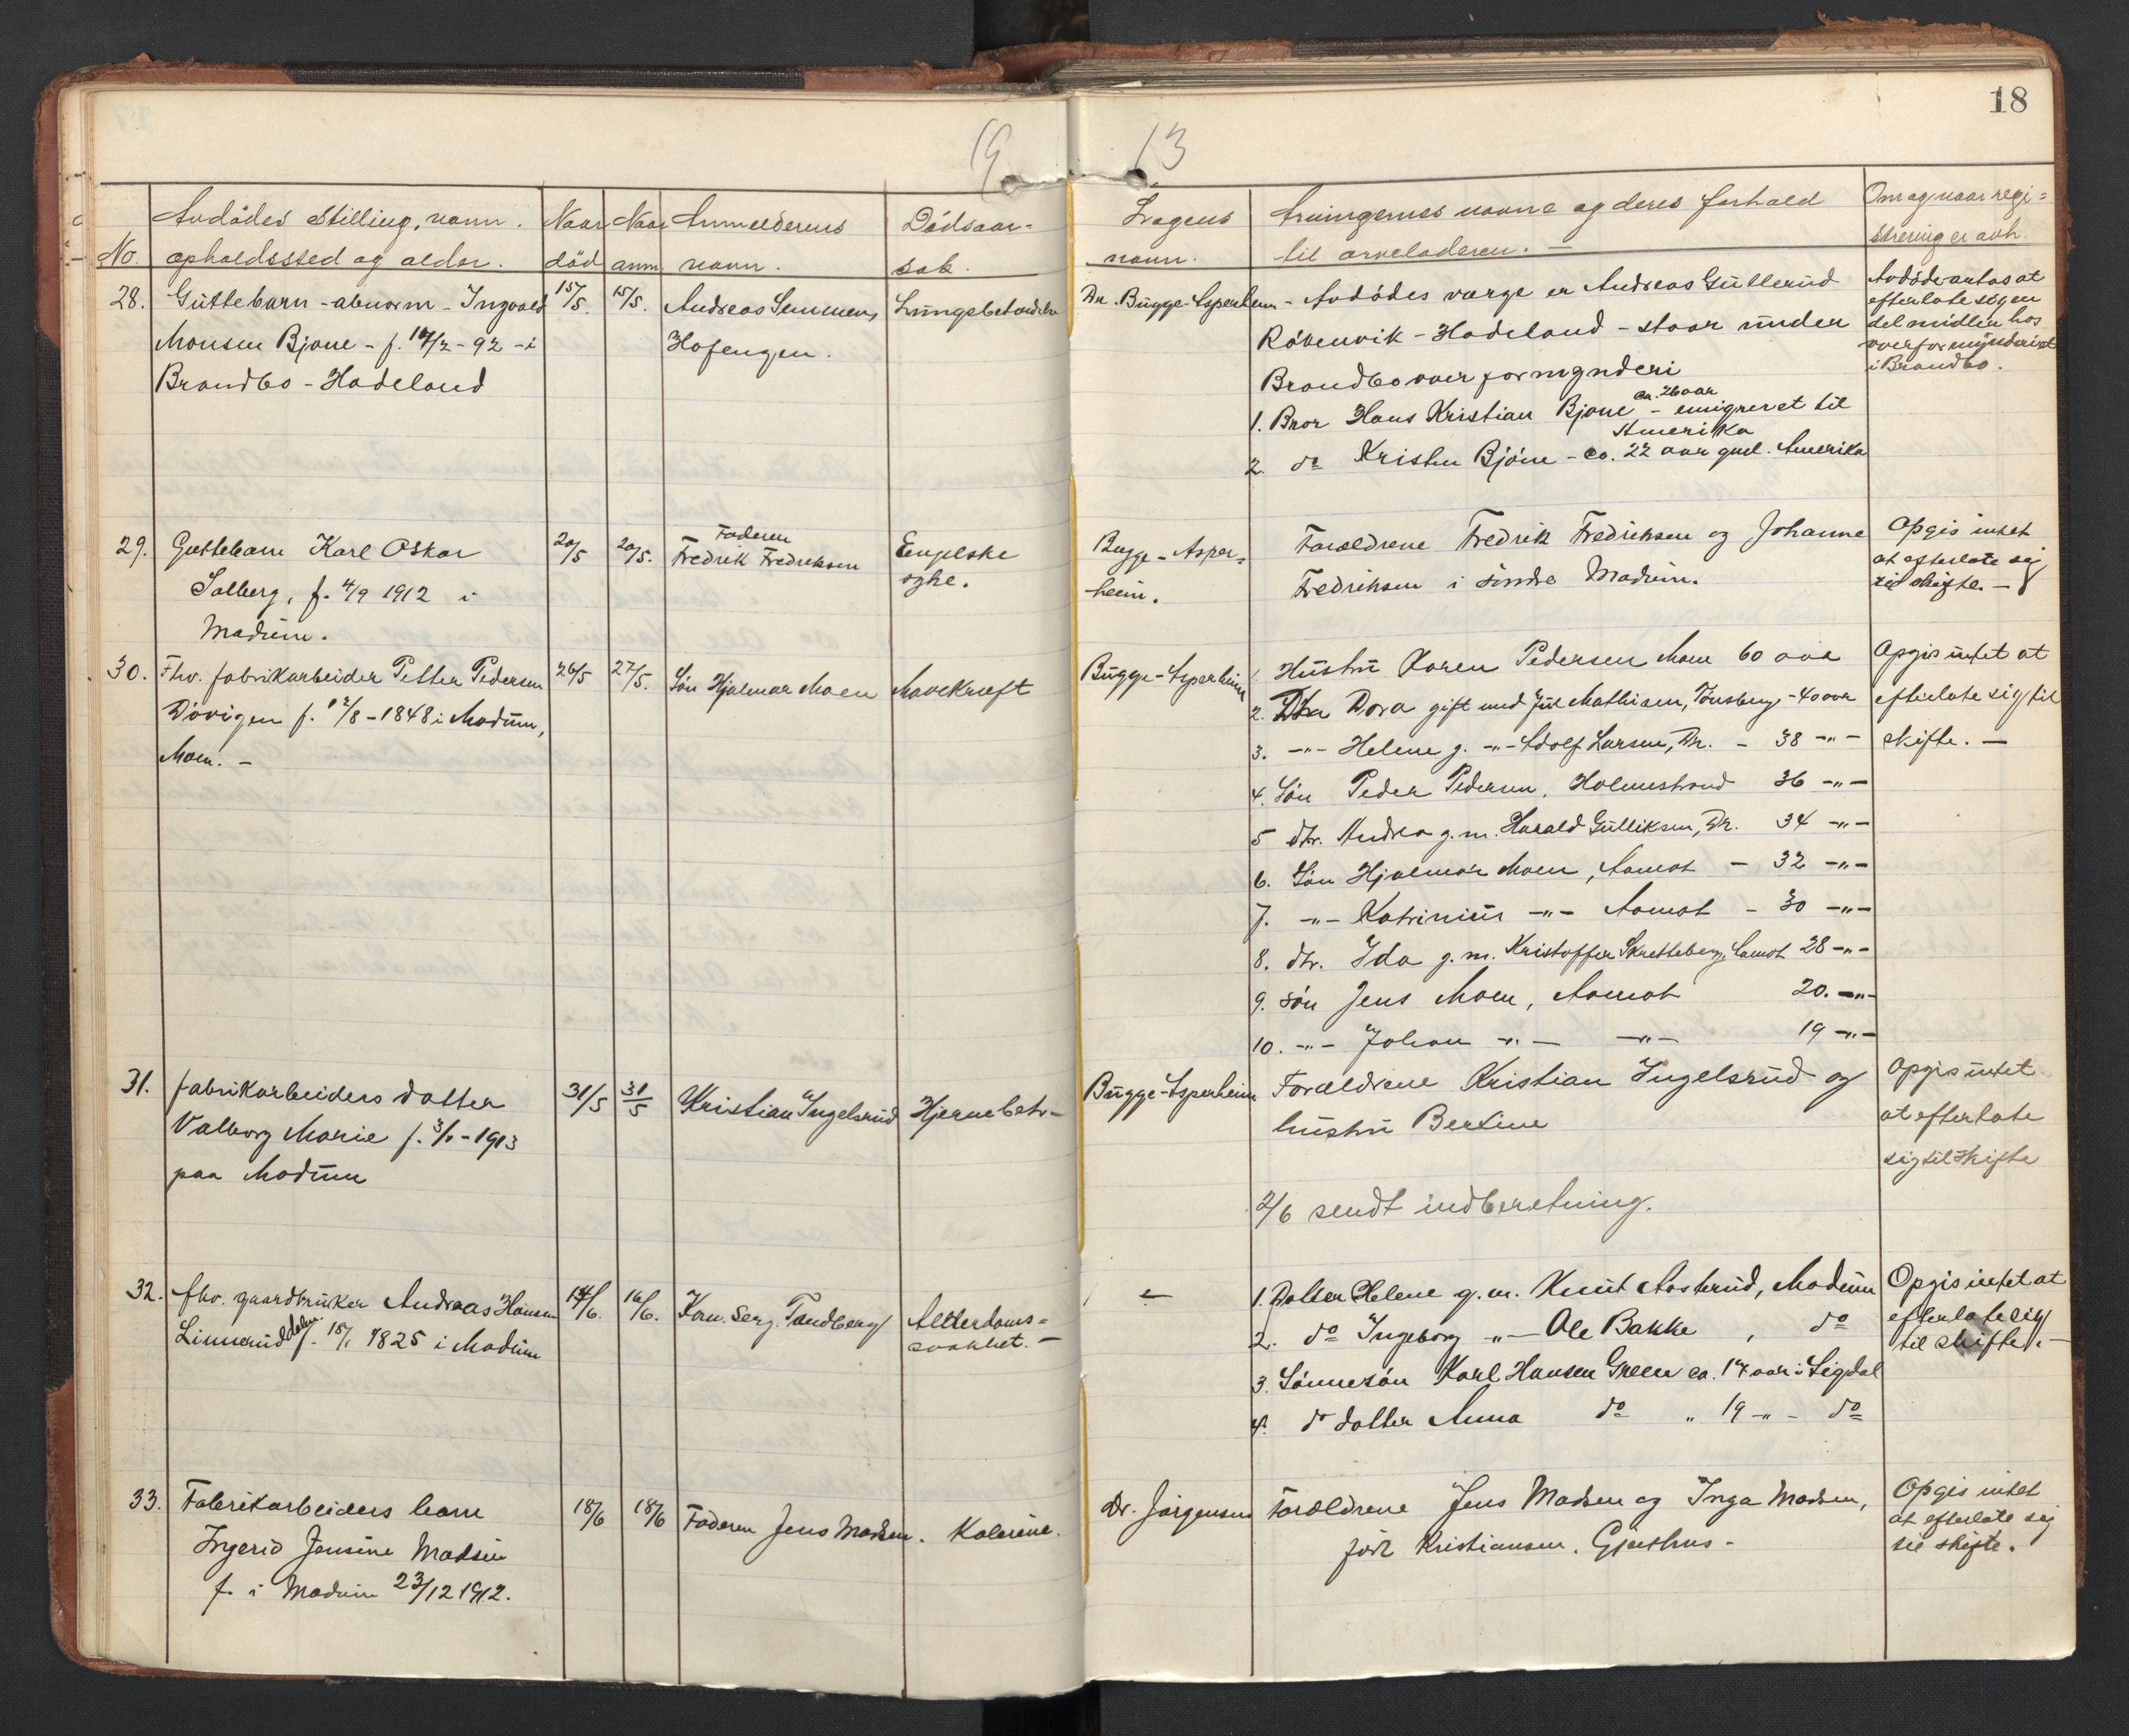 18
19 13
No. Avdödes stilling, navn. opholdssted og alder.
Naar död
Naar anm.
Anmelderens navn.
Dödsaarsak.
Lægens navn.
Arvingernes navne og deres forhold til arveladeren. —
Om og naar registrering er avh.
28. Guttebarn - abnorm - Ingvald
Monsen Bjone - f. /2 - 92 - i
Brandbo - Hadeland
15/5.
15/5.
Andreas
Hofengen.
Lungebetændelse
Dr. Bugge-Asperheim
- Avdödes værge er Andreas Gullerud
Rökenvik - Hadeland - staar under
Brandbo overformynderi
1. Bror Hans Kristian Bjone ca. 26 aar - emigreret til
Amerika
2. do Kristen Bjöne - ca. 22 aar gml. Amerika
Avdöde antas at
efterlate sig en
del midler hos
overformynderiet
i Brandbo.
29. Guttebarn Karl Oskar
Solberg, f. 4/9 1912 i
Modum.
20/5
20/5.
Faderen
Fredrik Fredriksen
Engelske
syke.
Bugge-Asper-
heim.
Forældrene Fredrik Fredriksen og Johanne
Fredriksen i söndre Modum.
Opgis intet
at efterlate sig
til skifte. —
30. Fhv. fabrikarbeider Petter Pedersen
Dövigen f. 12/8 - 1848 i Modum,
Moen. —
26/5
27/5.
Sön Hjalmar Moen
Mavekræft
Bugge-Asperheim
1. Hustru Karen Pedersen Moen 60 aar
2. Dtr Dora gift med Jul Mathisen, Tönsberg - 40 aar
3. -"- Helene g. -"- Adolf Larsen, Dr. - 38 -"-
4. Sön Peder Pedersen, Holmestrand 36 -"-
5 dtr. Andrea g. m. Harald Gulliksen, Dr. 34 -"-
6. Sön Hjalmar Moen, Aamot - 32 -"-
7. -"- Katrinius -"- Aamot - 30 -"-
8. dtr. Ida g. m. Kristoffer Skretteberg, Aamot 28 -"-
9. sön Jens Moen, Aamot 20. -"-
10. -"- Johan -"- -"- 19 -"-
Opgis intet at
efterlate sig til
skifte. —
31. fabrikarbeiders datter
Valborg Marie f. - 1913
paa Modum
31/5
31/5
Kristian Ingelsrud
Hjernebetr-
Bugge-Asperheim
Forældrene Kristian Ingelsrud og
hustru Bertine
Opgis intet
at efterlate
sig til skifte
2/6 sendt indberetning.
32. fhv. gaardbruker Andreas Hansen
Linneruddalen f. 18/1 1825 i Modum
14/6.
16/6.
Kom. serg. Tandberg
Alderdoms-
svakhet. —
1. Datter Helene g. m. Knut Aasterud, Modum
2. do Ingeborg -"- Ole Bakke, do
3. Sönnesön Karl Hansen Green ca. 17 aar i Sigdal
4. do datter Anna do " 19 -"- do
Opgis intet at
efterlate sig
til skifte. —
33. Fabrikarbeiders barn
Ingerid Jensine Madsen
f. i Modum 23/12 1912.
18/6
18/6
Faderen Jens Madsen.
Kolerine.
Dr. Jörgensen
Forældrene Jens Madsen og Inga Madsen,
födt Kristiansen. Gjethus -
Opgis intet
at efterlate sig
til skifte.